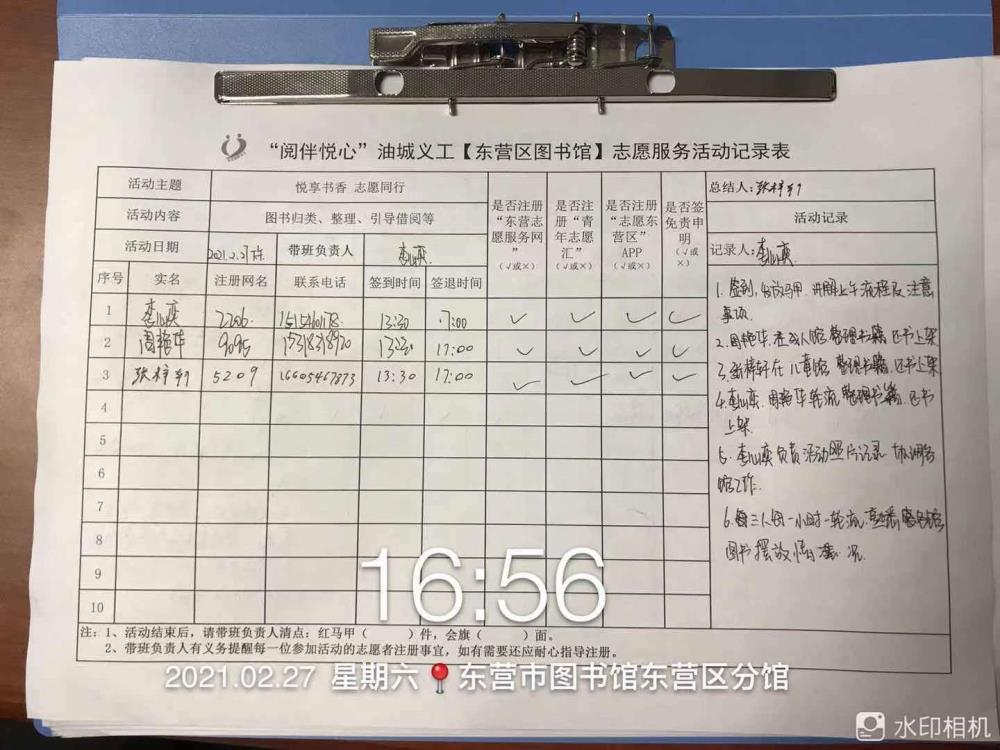 “阅伴悦心”油城义工【东营区图书馆】志愿服务活动记录表
活动主题 悦享书香 志愿同行
活动内容 图书归类、整理、引导借阅等
活动日期 2021.2.27 带班负责人 李心奕
是否注册“东营志愿服务网”(√或×)
是否注册“青年志愿汇”(√或×)
是否注册“志愿东营区”APP(√或×)
是否签免责申明(√或×)
总结人:张梓轩
活动记录
记录人:李心奕
序号 实名 注册网名 联系电话 签到时间 签退时间
1 李心奕 2206 13:30 17:00 √ √ √ √
2 周艳华 9095 15318318920 13:30 17:00 √ √ √ √
3 5209 16605467873 13:30 17:00 √ √ √ √
4
5
6
7
8
9
10
1. 签到,分发马甲,讲解上午流程及注意
事项.
2. 周艳华在成人馆整理书籍,还书上架
3. 在儿童馆整理书籍,还书上架
4. 李心奕,周艳华轮流整理书籍,还书
上架.
5. 李心奕负责活动照片记录,协调各
馆工作.
6. 每三人每一小时一轮流,
图书摆放情况.
注:1、活动结束后,请带班负责人清点:红马甲( )件,会旗( )面。
2、带班负责人有义务提醒每一位参加活动的志愿者注册事宜,如有需要还应耐心指导注册。
16:56
2021.02.27 星期六 东营市图书馆东营区分馆
水印相机